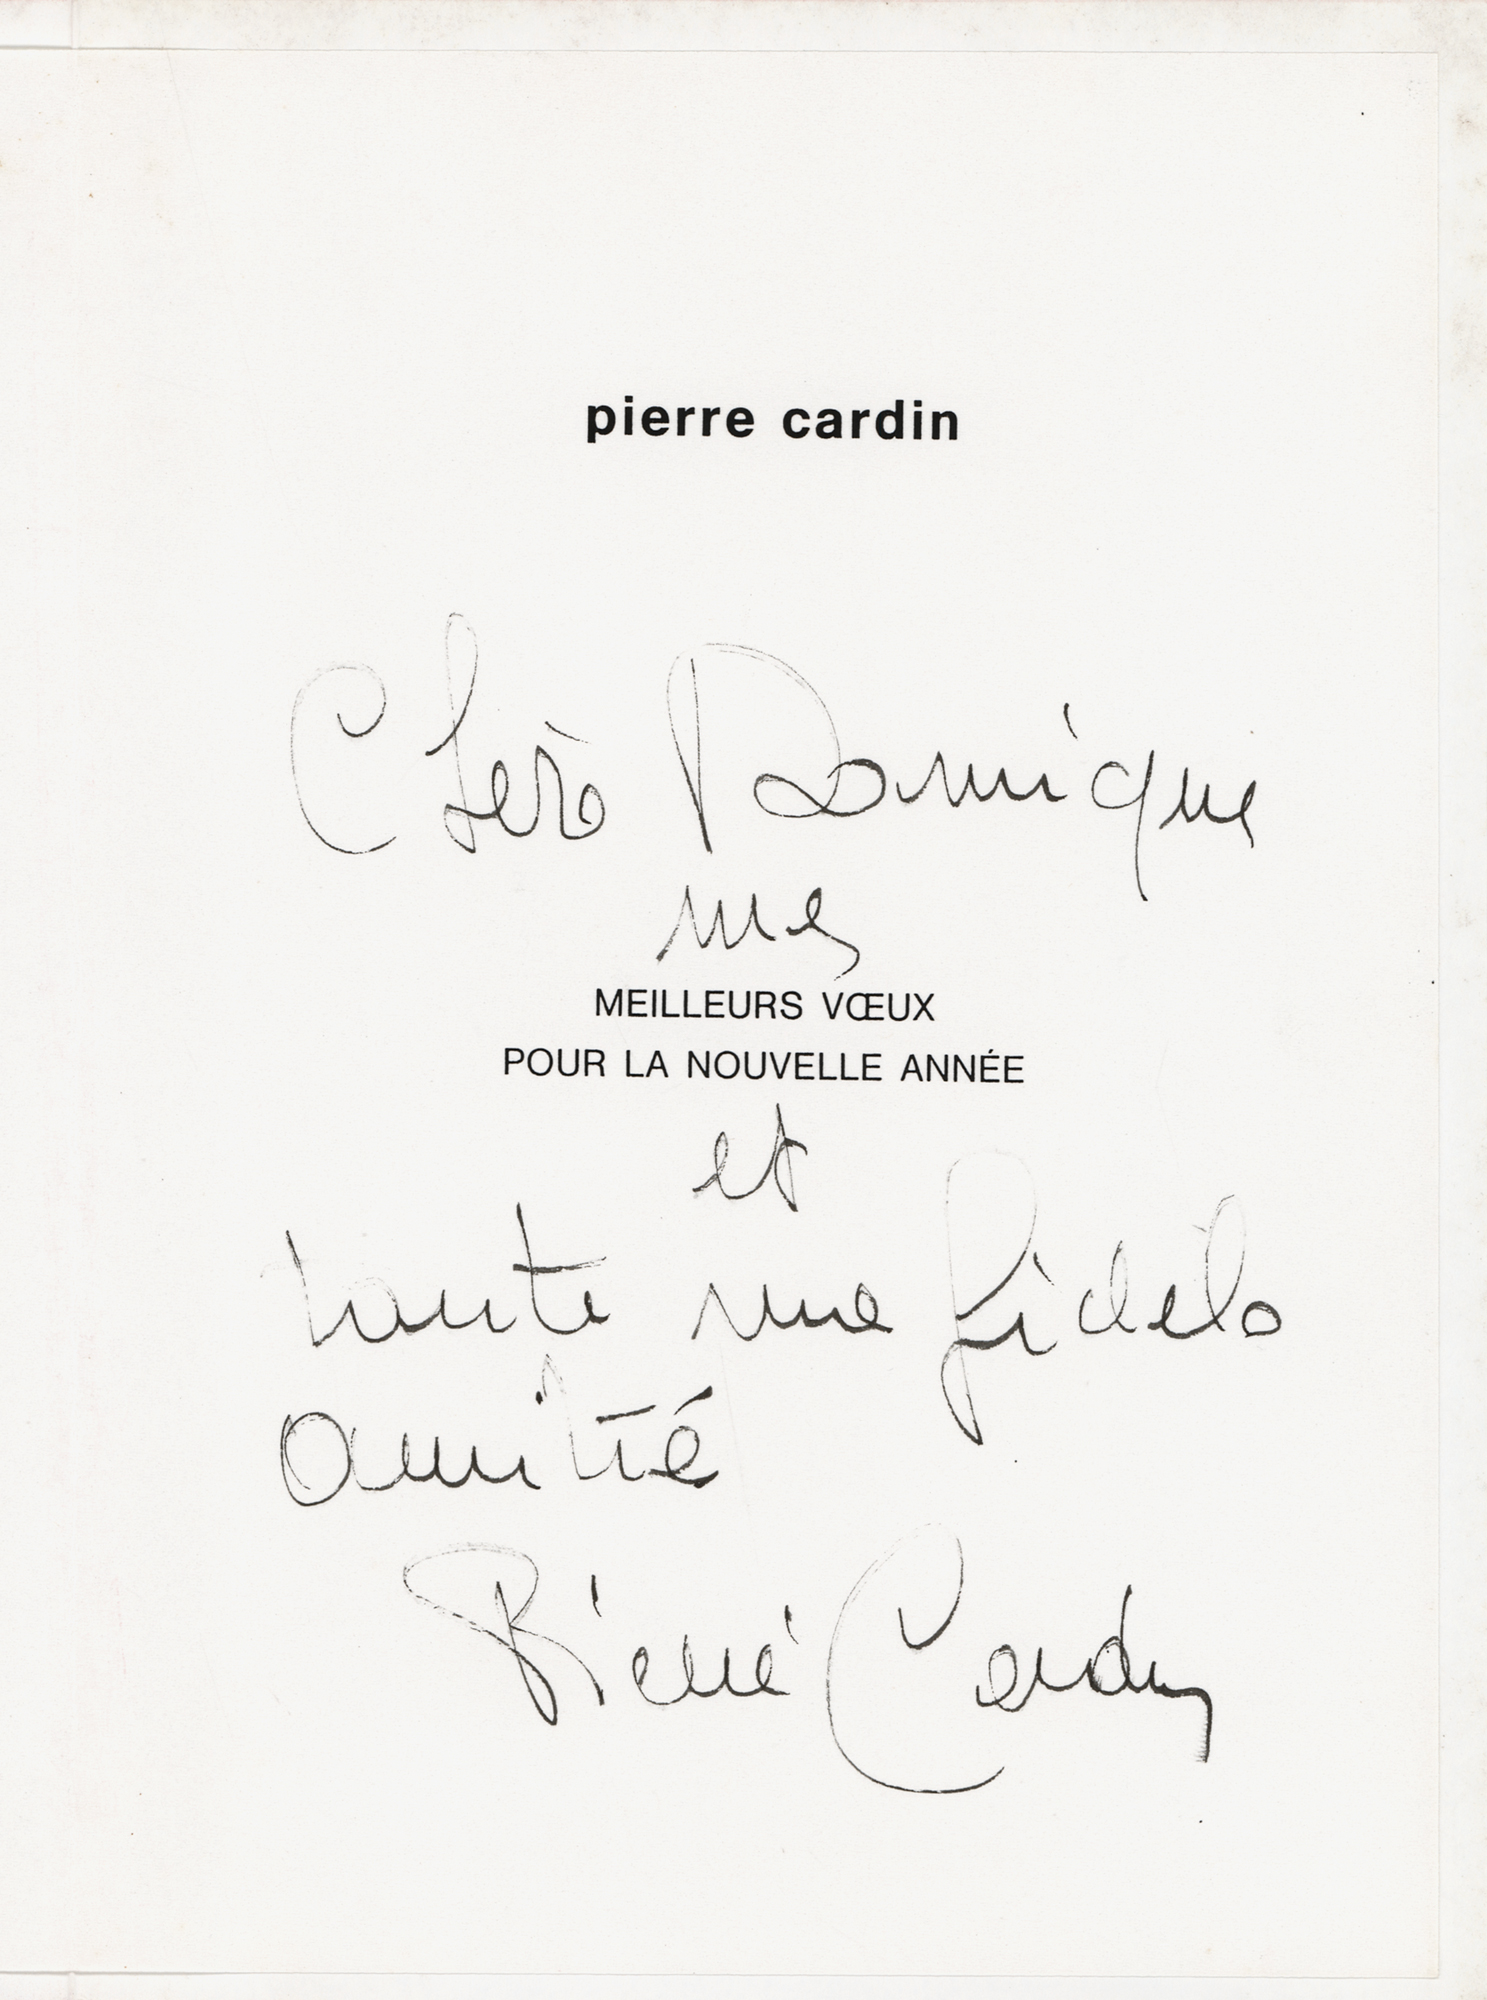 pierre cardin
Chère Dominique
mes
MEILLEURS VŒUX
POUR LA NOUVELLE ANNÉE
et
toute ma fidèle
amitié
Pierre Cardin